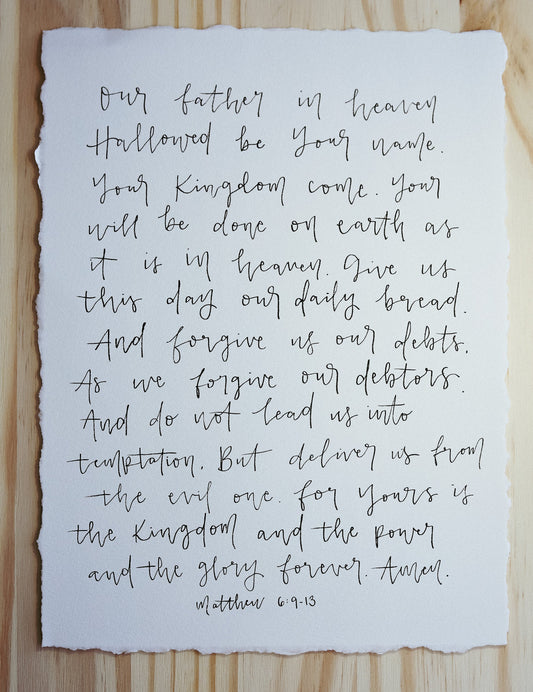 Our father in heaven
Hallowed be Your name.
Your Kingdom come. Your
will be done on earth as
it is in heaven. Give us
this day our daily bread.
And forgive us our debts.
As we forgive our debtors.
And do not lead us into
temptation. But deliver us from
the evil one. for Yours is
the Kingdom and the power
and the glory forever. Amen.
Matthew 6:9-13